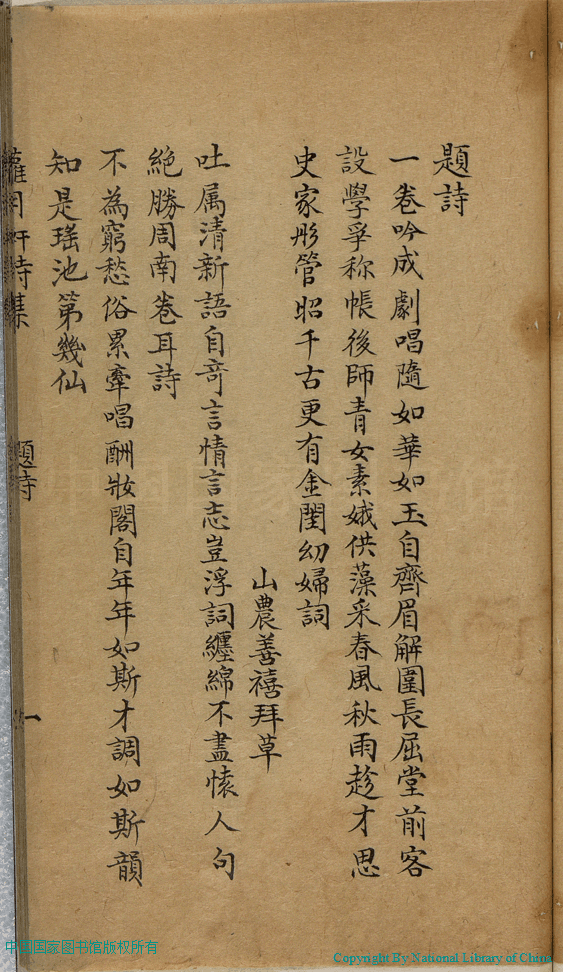 題詩
一卷吟成劇唱隨如華如玉自齊眉解圍長屈堂前客
設學爭称帳後師青女素娥供藻采春風秋雨趁才思
史家彤管昭千古更有金閨幼婦詞
山農善禧拜草
吐属清新語自竒言情言志豈浮詞纏綿不盡懐人句
絶勝周南卷耳詩
不為窮愁俗累牽唱酬妝閣自年年如斯才調如斯韻
知是瑶池第幾仙
月軒詩集
題詩
一
中国国家图书馆版权所有
Copyright By National Library of China